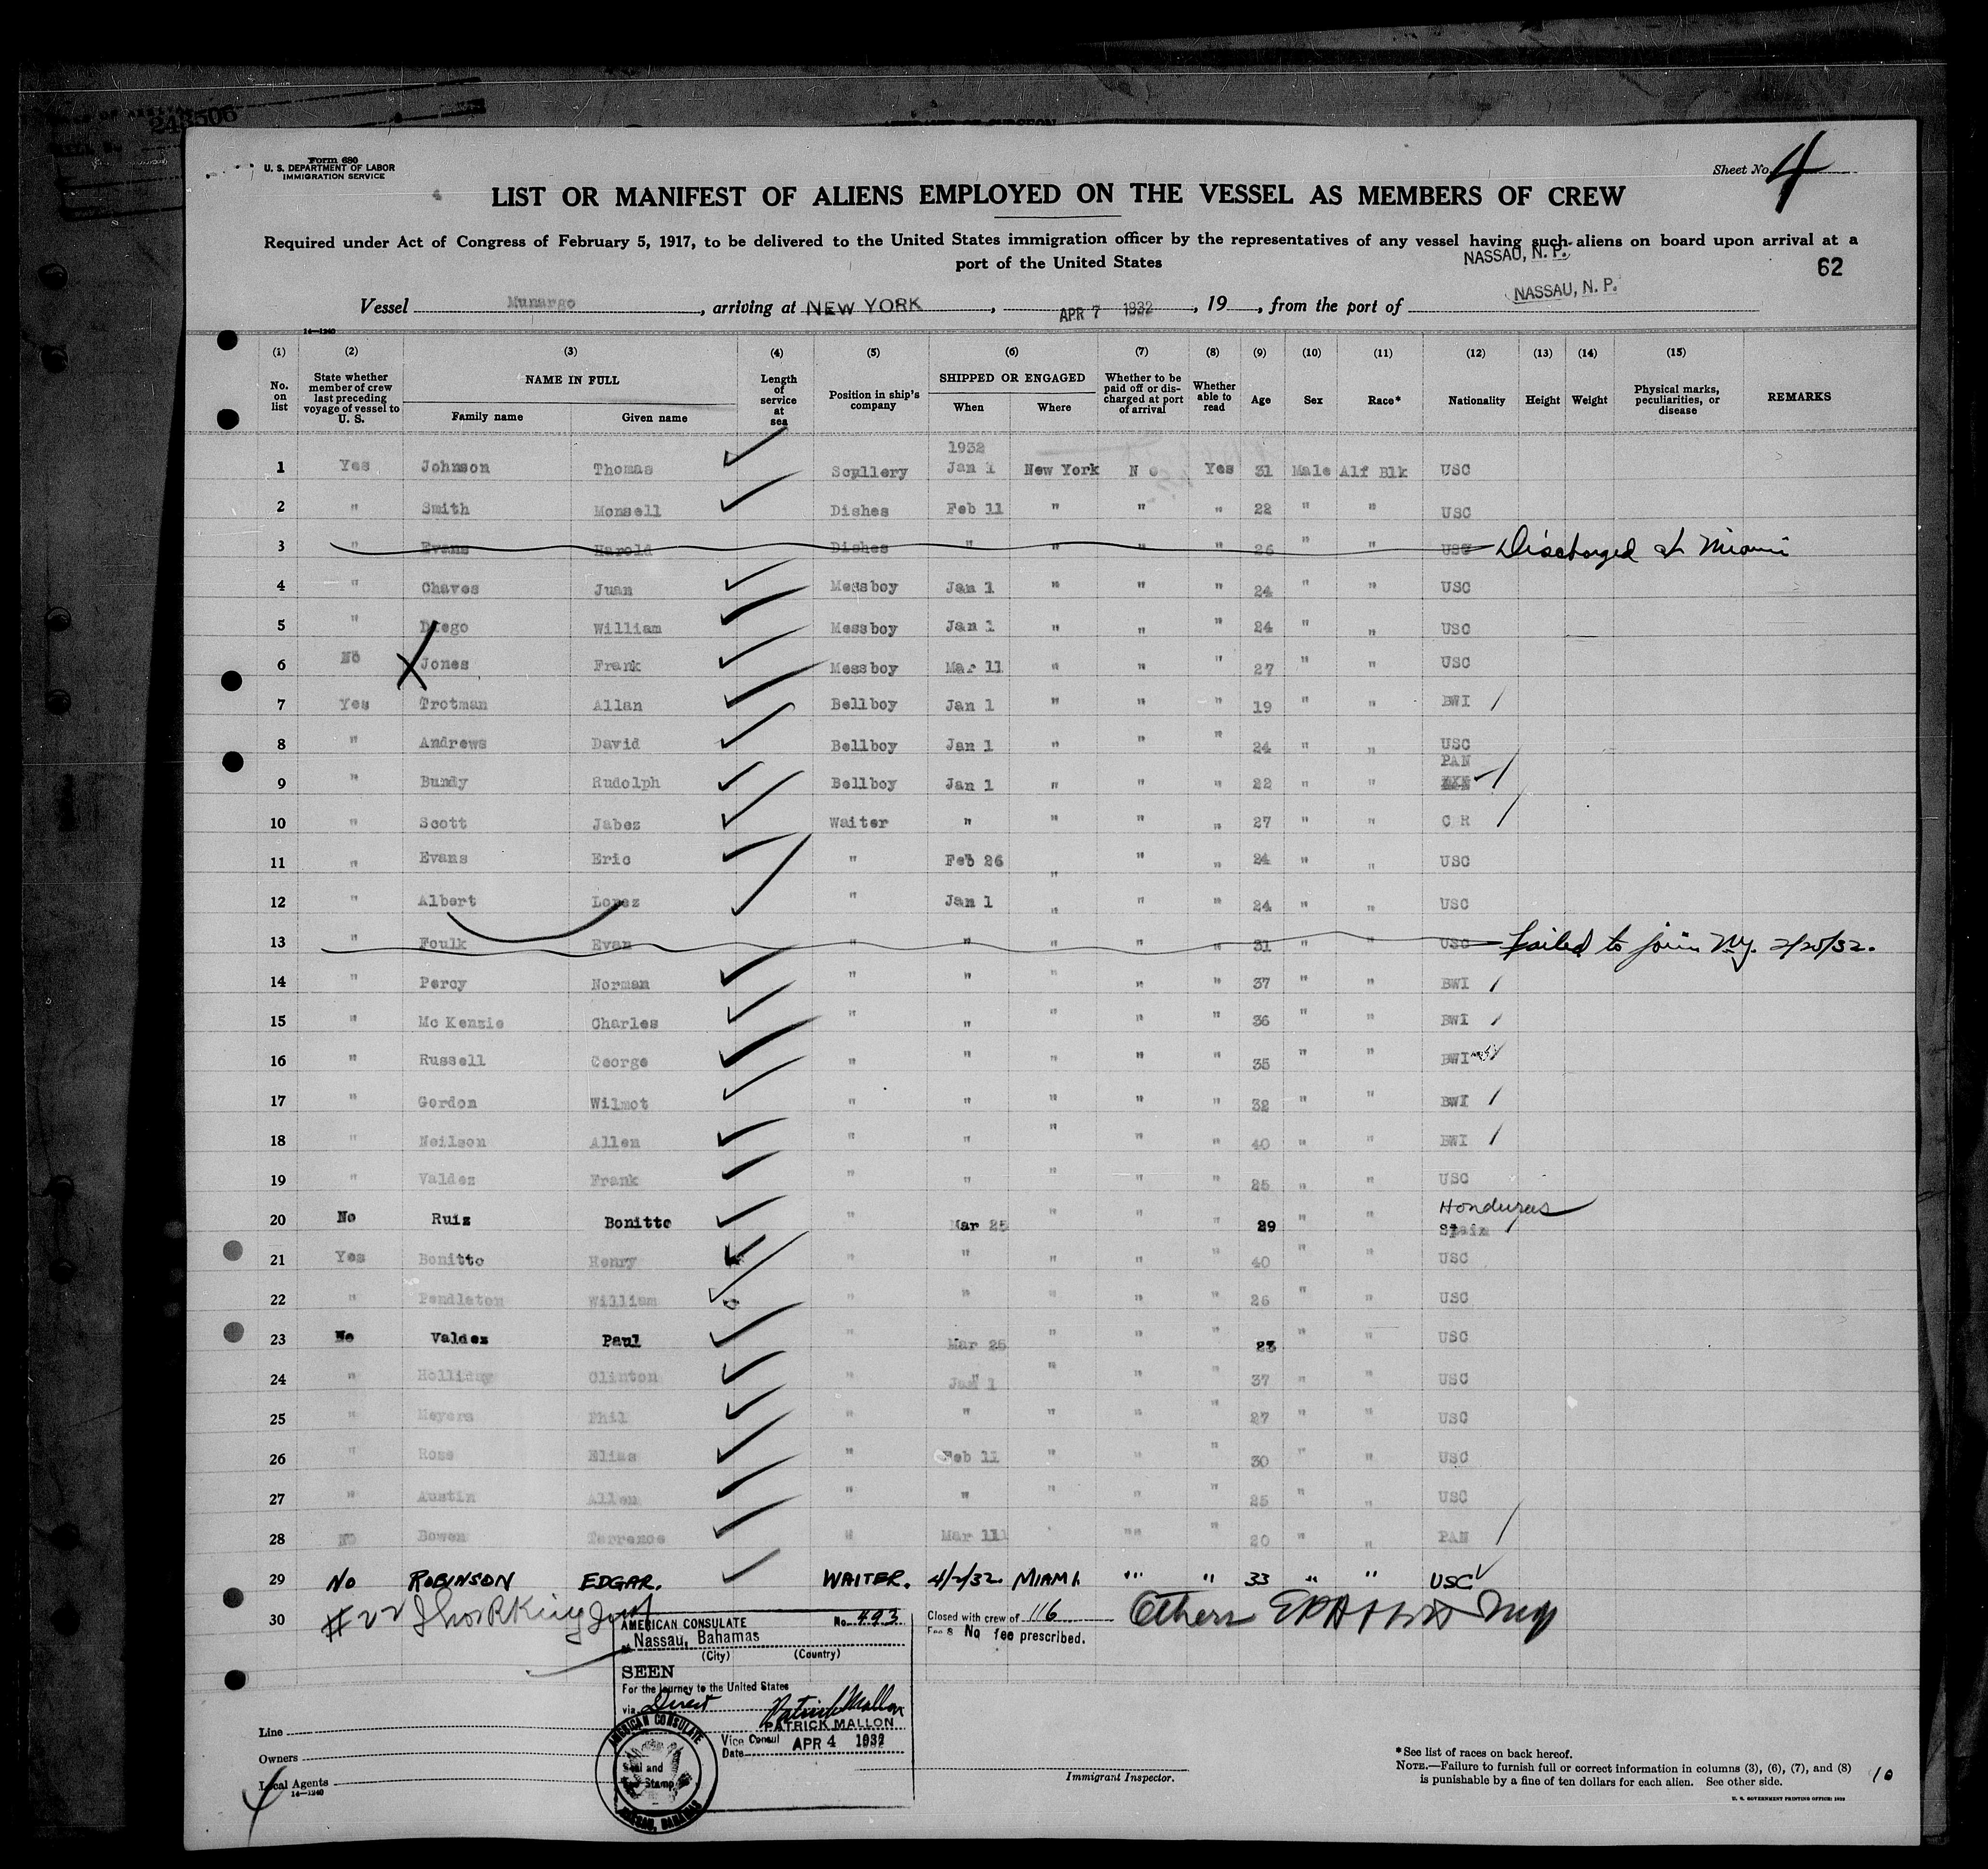 248506
Form 680
U. S. DEPARTMENT OF LABOR
IMMIGRATION SERVICE
Sheet No. 4
LIST OR MANIFEST OF ALIENS EMPLOYED ON THE VESSEL AS MEMBERS OF CREW
Required under Act of Congress of February 5, 1917, to be delivered to the United States immigration officer by the representatives of any vessel having such aliens on board upon arrival at a
port of the United States
NASSAU, N. P.
62
Vessel Munargo, arriving at NEW YORK, APR 7 1932, 19, from the port of NASSAU, N. P.
14—1240
(1) (2) (3) (4) (5) (6) (7) (8) (9) (10) (11) (12) (13) (14) (15)
No. on list
State whether member of crew last preceding voyage of vessel to U. S.
NAME IN FULL
Family name Given name
Length of service at sea
Position in ship's company
SHIPPED OR ENGAGED
When Where
Whether to be paid off or discharged at port of arrival
Whether able to read
Age
Sex
Race*
Nationality
Height
Weight
Physical marks, peculiarities, or disease
REMARKS
1932
1 Yes Johnson Thomas Scullery Jan 1 New York No Yes 31 Male Afr Blk USC
2 " Smith Monsell Dishes Feb 11 " " " 22 " " USC
3 " Evans Harold Dishes " " " " 26 " " USC Discharged at Miami
4 " Chaves Juan Messboy Jan 1 " " " 24 " " USC
5 " Diego William Messboy Jan 1 " " " 24 " " USC
6 No Jones Frank Messboy Mar 11 " " " 27 " " USC
7 Yes Trotman Allan Bellboy Jan 1 " " " 19 " " BWI
8 " Andrews David Bellboy Jan 1 " " " 24 " " USC
PAN
9 " Bundy Rudolph Bellboy Jan 1 " " " 22 " "
10 " Scott Jabez Waiter " " " " 27 " " C R
11 " Evans Eric " Feb 26 " " " 24 " " USC
12 " Albert Lopez " Jan 1 " " " 24 " " USC
13 " Foulk Evan " " " " " 31 " " USC Failed to join N.Y. 2/25/32.
14 " Percy Norman " " " " " 37 " " BWI
15 " Mc Kenzie Charles " " " " " 36 " " BWI
16 " Russell George " " " " " 35 " " BWI
17 " Gordon Wilmot " " " " " 32 " " BWI
18 " Neilson Allen " " " " " 40 " " BWI
19 " Valdez Frank " " " " " 25 " " USC
Honduras
20 No Ruiz Bonitto " Mar 25 " " " 29 " " Spain
21 Yes Bonitto Henry " " " " " 40 " " USC
22 " Pendleton William " " " " " 26 " " USC
23 No Valdez Paul " Mar 25 " " " 23 " " USC
24 " Holliday Clinton " Jan 1 " " " 37 " " USC
25 " Meyers Phil " " " " " 27 " " USC
26 " Rose Elias " Feb 11 " " " 30 " " USC
27 " Austin Allen " " " " " 25 " " USC
28 No Bowen Terrence " Mar 11 " " " 20 " " PAN
29 No ROBINSON EDGAR. WAITER. 4/2/32. MIAMI. " " 33 " " USC
30 #22
AMERICAN CONSULATE No. 493
at Nassau, Bahamas
(City) (Country)
SEEN
For the journey to the United States
via Direct Patrick Mallon
PATRICK MALLON
Vice Consul
Date APR 4 1932
AMERICAN CONSULATE
Seal and
Fee Stamp
NASSAU, BAHAMAS
Closed with crew of 116
Fee $ No fee prescribed.
Others
Line
Owners
Local Agents
14—1240
Immigrant Inspector.
*See list of races on back hereof.
NOTE.—Failure to furnish full or correct information in columns (3), (6), (7), and (8)
is punishable by a fine of ten dollars for each alien. See other side.
U. S. GOVERNMENT PRINTING OFFICE: 1929
10